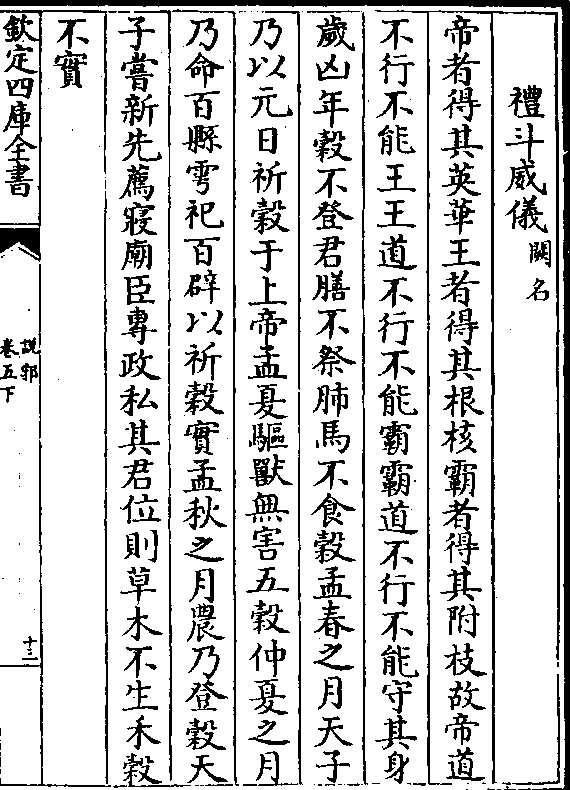 禮斗威儀闕名
帝者得其英華王者得其根核霸者得其附枝故帝道
不行不能王王道不行不能霸霸道不行不能守其身
歲凶年穀不登君膳不祭肺馬不食穀孟春之月天子
乃以元日祈穀于上帝孟夏驅獸無害五穀仲夏之月
乃命百縣雩祀百辟以祈穀實孟秋之月農乃登穀天
子嘗新先薦寢廟臣專政私其君位則草木不生禾穀
不實
欽定四庫全書
說郛
卷五下
十三